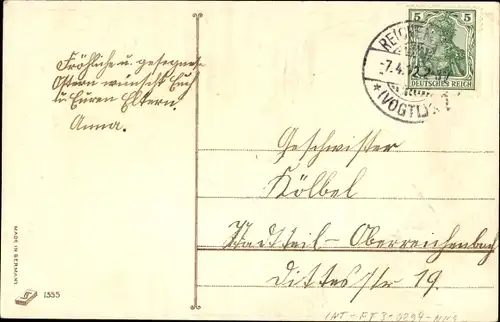 Fröhliche u. gesegnete
Ostern wünscht Euch
u. Euren Eltern
Anna.
5 5
DEUTSCHES REICH
-7.4.12.2-3
*(VOGTL)*
Geschwister
Kölbel
Stadtteil-Oberreichenbach
Dittesstr 19.
MADE IN GERMANY
1355